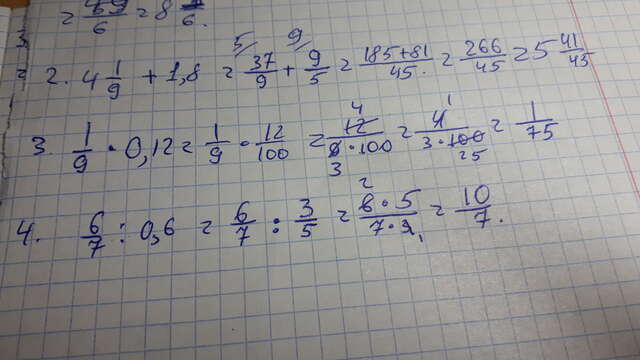 = 49/6 = 8 1/6.
2. 4 1/9 + 1,8 = 37/9 + 9/5 = 185+81/45. = 266/45 = 5 41/45
3. 1/9 · 0,12 = 1/9 · 12/100 = 12/9·100 = 4/3·100 = 1/75
4. 6/7 : 0,6 = 6/7 : 3/5 = 6·5/7·3 = 10/7.